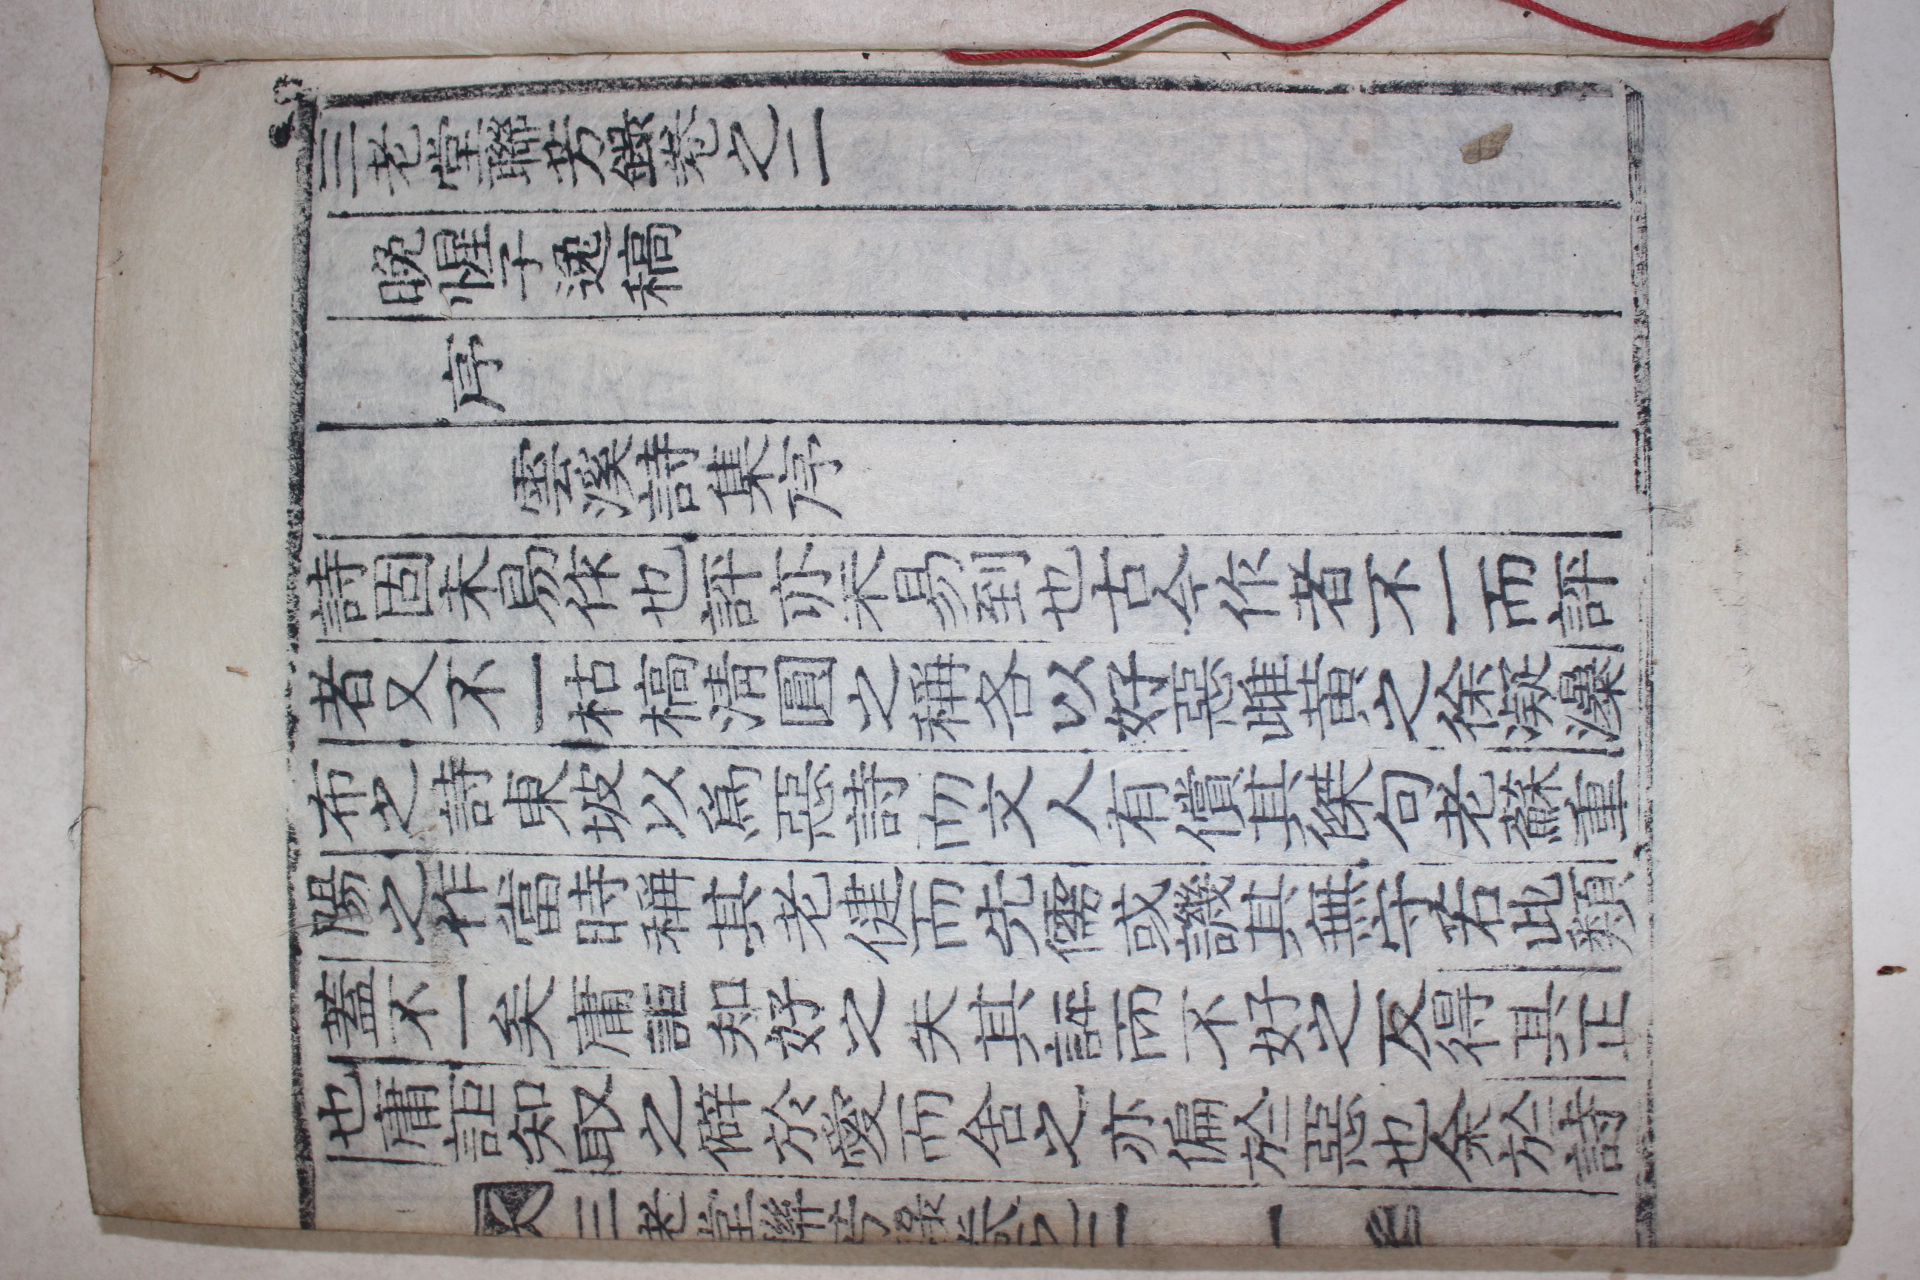 三老堂聯芳錄卷之二
晩惺子逸稿
序
雲溪詩集序
詩固未易作也評亦未易到也古今作者不一而評
者又不一枯槁淸圓之稱各以好惡雌黃之徐凝瀑
布之詩東坡以爲惡詩而文人有償其傑句老蘇重
陽之作當時稱其老健而先儒或譏其無守若此類
蓋不一矣庸詎知好之失其評而不好之反得其正
也庸詎知取之僻於愛而舍之亦偏於惡也余於詩
三老堂聯芳錄卷之二 一